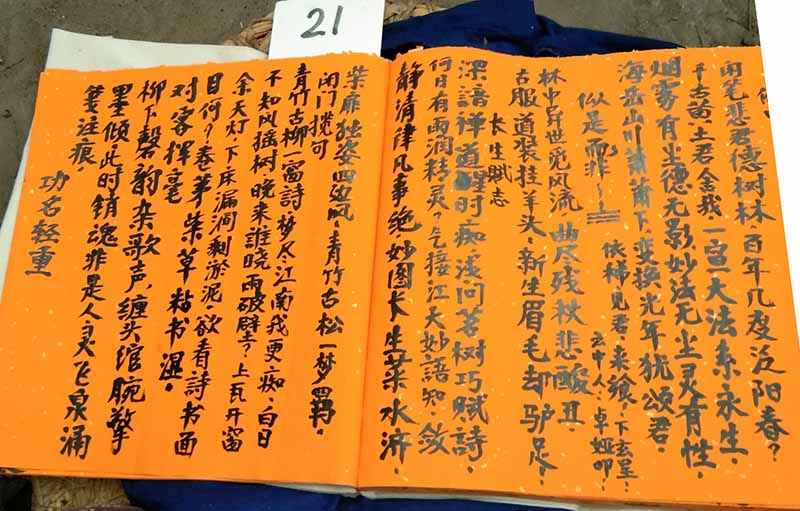 21
闲笔悲君德树林，百年几度泛阳春？
千古黄土君舍我，一鱼大法系永生。
烟雾有尘德无影，妙法无尘灵有性。
海岳山川萧萧下，变换光年犹颂君。
似是而非～三
依稀见君，来飨，下玄呈。
云中人：卓娅叩。
林中异世见风流，曲尽残杖悲酸丑。
古服道装挂羊头，新生眉毛却驴足。
长生赋志
深谙禅道醒时痴，浅问茗树巧赋诗。
何日有雨润精灵？气接江天妙语知。敛
静清律凡事绝，妙图长生菜水济。
柴扉独姿四边风，青竹古松一梦羁。
闭门揽句
青竹古柳一窗詩，梦尽江南我更痴。白日
不知风摇树，晚来谁晓雨破壁？上瓦开窗
余天灯，下床漏洞剩淤泥。欲看詩书面
日何？春茅柴草粘书湿。
对客挥毫
柳下磬韵杂歌声，缠头绾腕擎
墨倾。此时销魂非是人，灵飞泉涌
笺注痕。
功名轻重